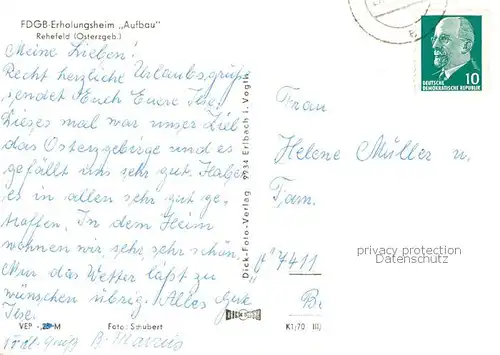 FDGB-Erholungsheim „Aufbau"
Rehefeld (Osterzgeb.)
Meine Lieben!
Recht herzliche Urlaubsgrüße
sendet Euch Euere Ilse.
Dieses mal war unser Ziel
das Osterzgebirge und es
gefällt uns sehr gut. Haben
es in allen sehr gut ge-
troffen. In dem Heim
wohnen wir sehr, sehr schön.
Nur das Wetter läßt zu
wünschen übrig. Alles Gute
Ilse.
VEP M Foto: Schubert
Dick-Foto-Verlag 9934 Erlbach i. Vogtl.
DICK
K1/70
10
DEUTSCHE
DEMOKRATISCHE REPUBLIK
Frau
Helene Müller u.
Fam.
7411
privacy protection
Datenschutz